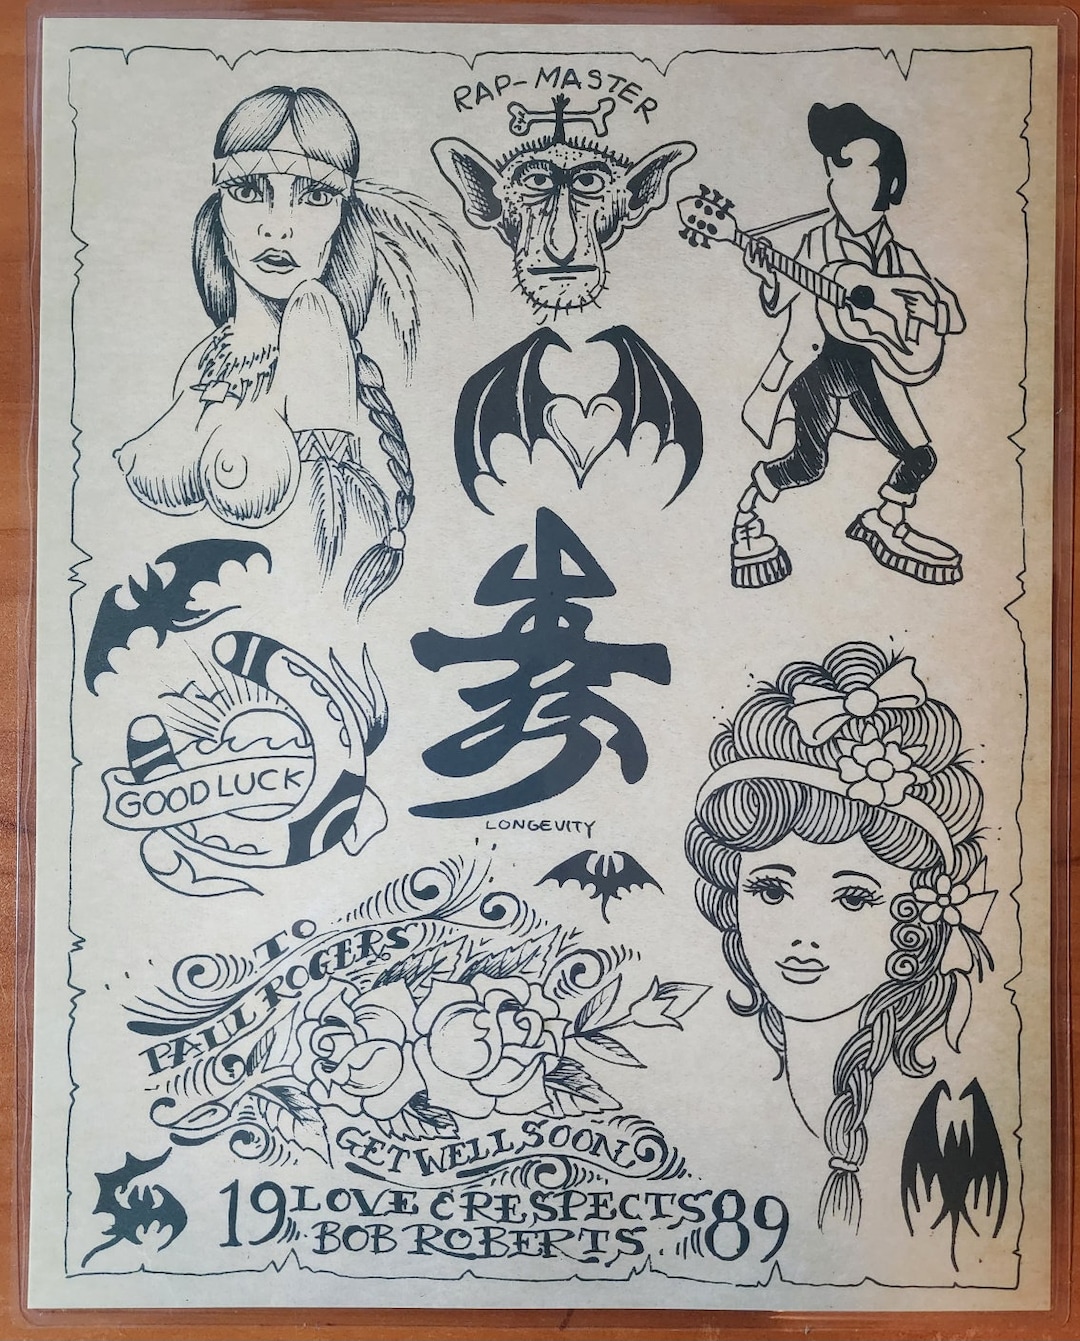 RAP-MASTER
壽
GOOD LUCK
LONGEVITY
TO
PAUL ROGERS
GET WELL SOON
1989
LOVE & RESPECTS
BOB ROBERTS